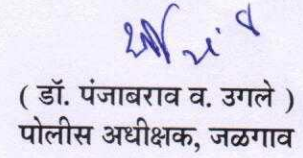 ( डॉ. पंजाबराव व. उगले )
पोलीस अधीक्षक, जळगाव